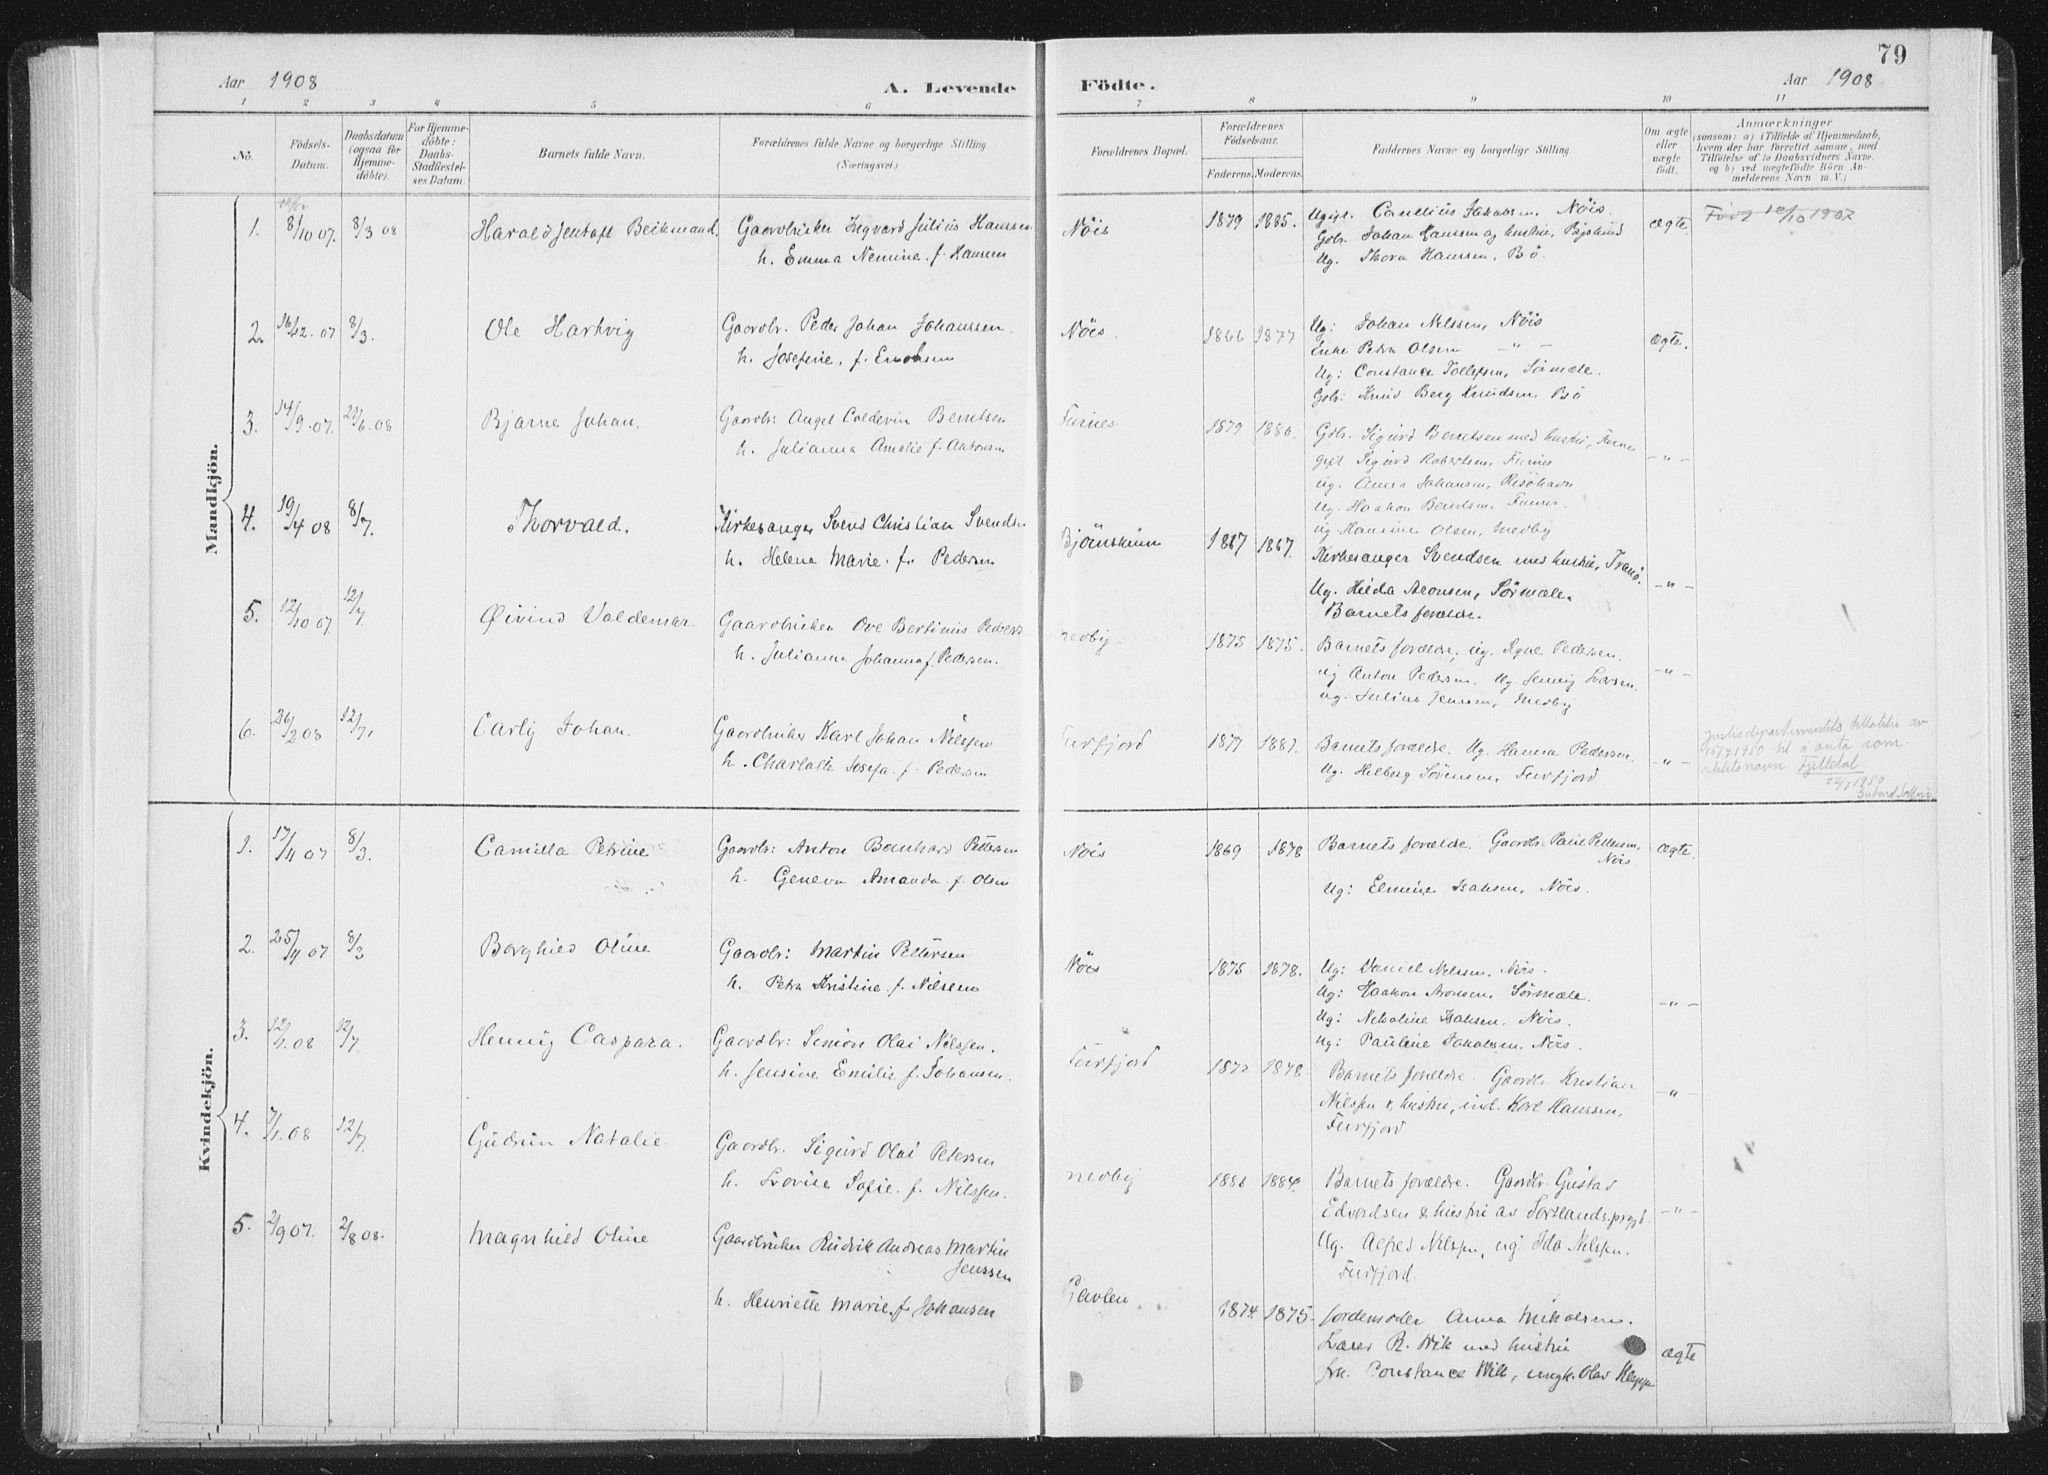 79
Aar 1908
A. Levende Födte.
Aar 1908
1 2 3 4 5 6 7 8 9 10 11
No.
Födsels-Datum.
Daabsdatum (ogsaa for Hjemme-döbte).
For Hjemme-döbte: Daabs-Stadfæstel-ses Datum.
Barnets fulde Navn.
Forældrenes fulde Navne og borgerlige Stilling (Næringsvei.)
Forældrenes Bopæl.
Forældrenes Födselsaar.
Faderens. Moderens.
Faddernes Navne og borgerlige Stilling.
Om ægte eller uægte födt.
Anmærkninger
(saasom: a) i Tilfælde af Hjemmedaab, hvem der har forrettet samme, med Tilföielse af to Daabsvidners Navne, og b) ved uægtefödte Börn Anmelderens Navn m. V.)
Mandkjön.
1. 8/10 07. 8/3 08 Harald Jentoft Beikmand. Gaardbruker Ingvard Julius Hanssen
h. Emma Nemine. f. Hansen
Nöis 1879 1885. Cornelius Jakobsen, Nöis.
Gbr. Johan Hanssen og hustru,
Ug. Thora Hanssen, Bö.
ægte. Född 10/10 1907
2. 16/12.07 8/3. Ole Hartvig Gaardbr. Peder Johan Johanssen.
h. Josefine. f. Enoksen
Nöis. 1866 1877 Ug: Johan Nelssen, Nöis
Enke Petra Olsen — " —
Ug: Constance Tollefsen, Sörmæle.
Gbr: Knud Berg Knudsen, Bö
ægte.
3. 14/9.07. 21/6.08 Bjarne Johan. Gaardbr: Angel Coldevin Berntsen
h. Julianna Amalie f. Antonsen
Furnes 1879 1880. Gbr. Sigurd Berntsen med hustru, Furnes
gift Sigurd Robertsen, Furnes
ug. Anna Johansen, Risöhavn
ug. Haakon Berntsen, Furnes.
ug. Hansine Olsen, Medby
— " —
4. 19/4 08 8/7. Thorvald. Kirkesanger Svend Christian Svendsen
h. Helene Marie. f. Pedersen
Björnskinn 1867 1867. Kirkesanger Svendsen med hustru, Tranö.
Ug. Hilda Aronsen, Sörmæle.
Barnets forældre.
— " —
5. 12/10 07. 12/7. Øivind Valdemar. Gaardbruker Ove Bertinius Pedersen
h. Julianna Johanna f. Pedersen.
Medby. 1875 1875. Barnets forældre, ug. Agne Pedersen.
ug Anton Pedersen. Ug. Jenny Larsen.
ug. Julius Jenssen, Medby
— " —
6. 26/2 08 12/7. Carly Johan. Gaardbruker Karl Johan Nilssen
h. Charlotte Josefa. f. Pedersen
Furfjord 1877 1881. Barnets forældre. Ug. Hanna Pedersen.
Ug. Helberg Sörensen, Furfjord
— " — Justisdepartementets tillatelse av
15/7 1950 til å anta som
slektsnavn Fjelldal
Kvindekjön.
1. 17/11 07 8/3. Camilla Petrine Gaardbr: Anton Bernhard Pettersen
h. Geneva Amanda f. Olsen
Nöis 1869 1878 Barnets forældre. Gaardbr. Paul Pettersen,
Nöis.
Ug: Elmine Isaksen, Nöis.
ægte.
2. 25/11 07 8/3 Borghild Oline Gaardbr: Martin Pettersen
h. Petra Kristine. f. Nilsen
Nöis 1875 1878. Ug: Daniel Nelssen, Nöis.
Ug: Haakon Aronsen, Sörmæle.
Ug: Nikoline Isaksen, Nöis.
ug: Pauline Jakobsen, Nöis.
— " —
3. 12/1.08 12/7. Henny Caspara. Gaardbr: Simon Olai Nilssen.
h. Jensine Emilie f. Johansen.
Furfjord 1872 1878 Barnets forældre. Gaardbr. Kristian
Nilssen & hustru, ind. Karl Hanssen,
Furfjord
— " —
4. 7/1.08 12/7. Gudrun Natalie Gaardbr. Sigurd Olai Petersen
h. Lovise Sofie. f. Nilssen.
Medby 1881 1884. Barnets forældre. Gaardbr. Gustav
Edvardsen & hustru av Sortlands prgjd.
Ug. Alfred Nilssen, ug Ida Nilssen.
Furfjord.
— " —
5. 2/9 07. 2/8 08. Magnhild Oline Gaardbruker Rudrik Andreas Martin
Jenssen
h. Henriette Marie. f. Johansen
Gavlen 1874. 1875. Jordemoder Anna Mikalsen.
Lærer R. Wik med hustru
frk. Constance Wik, ungk. Olav Kleppe
ægte